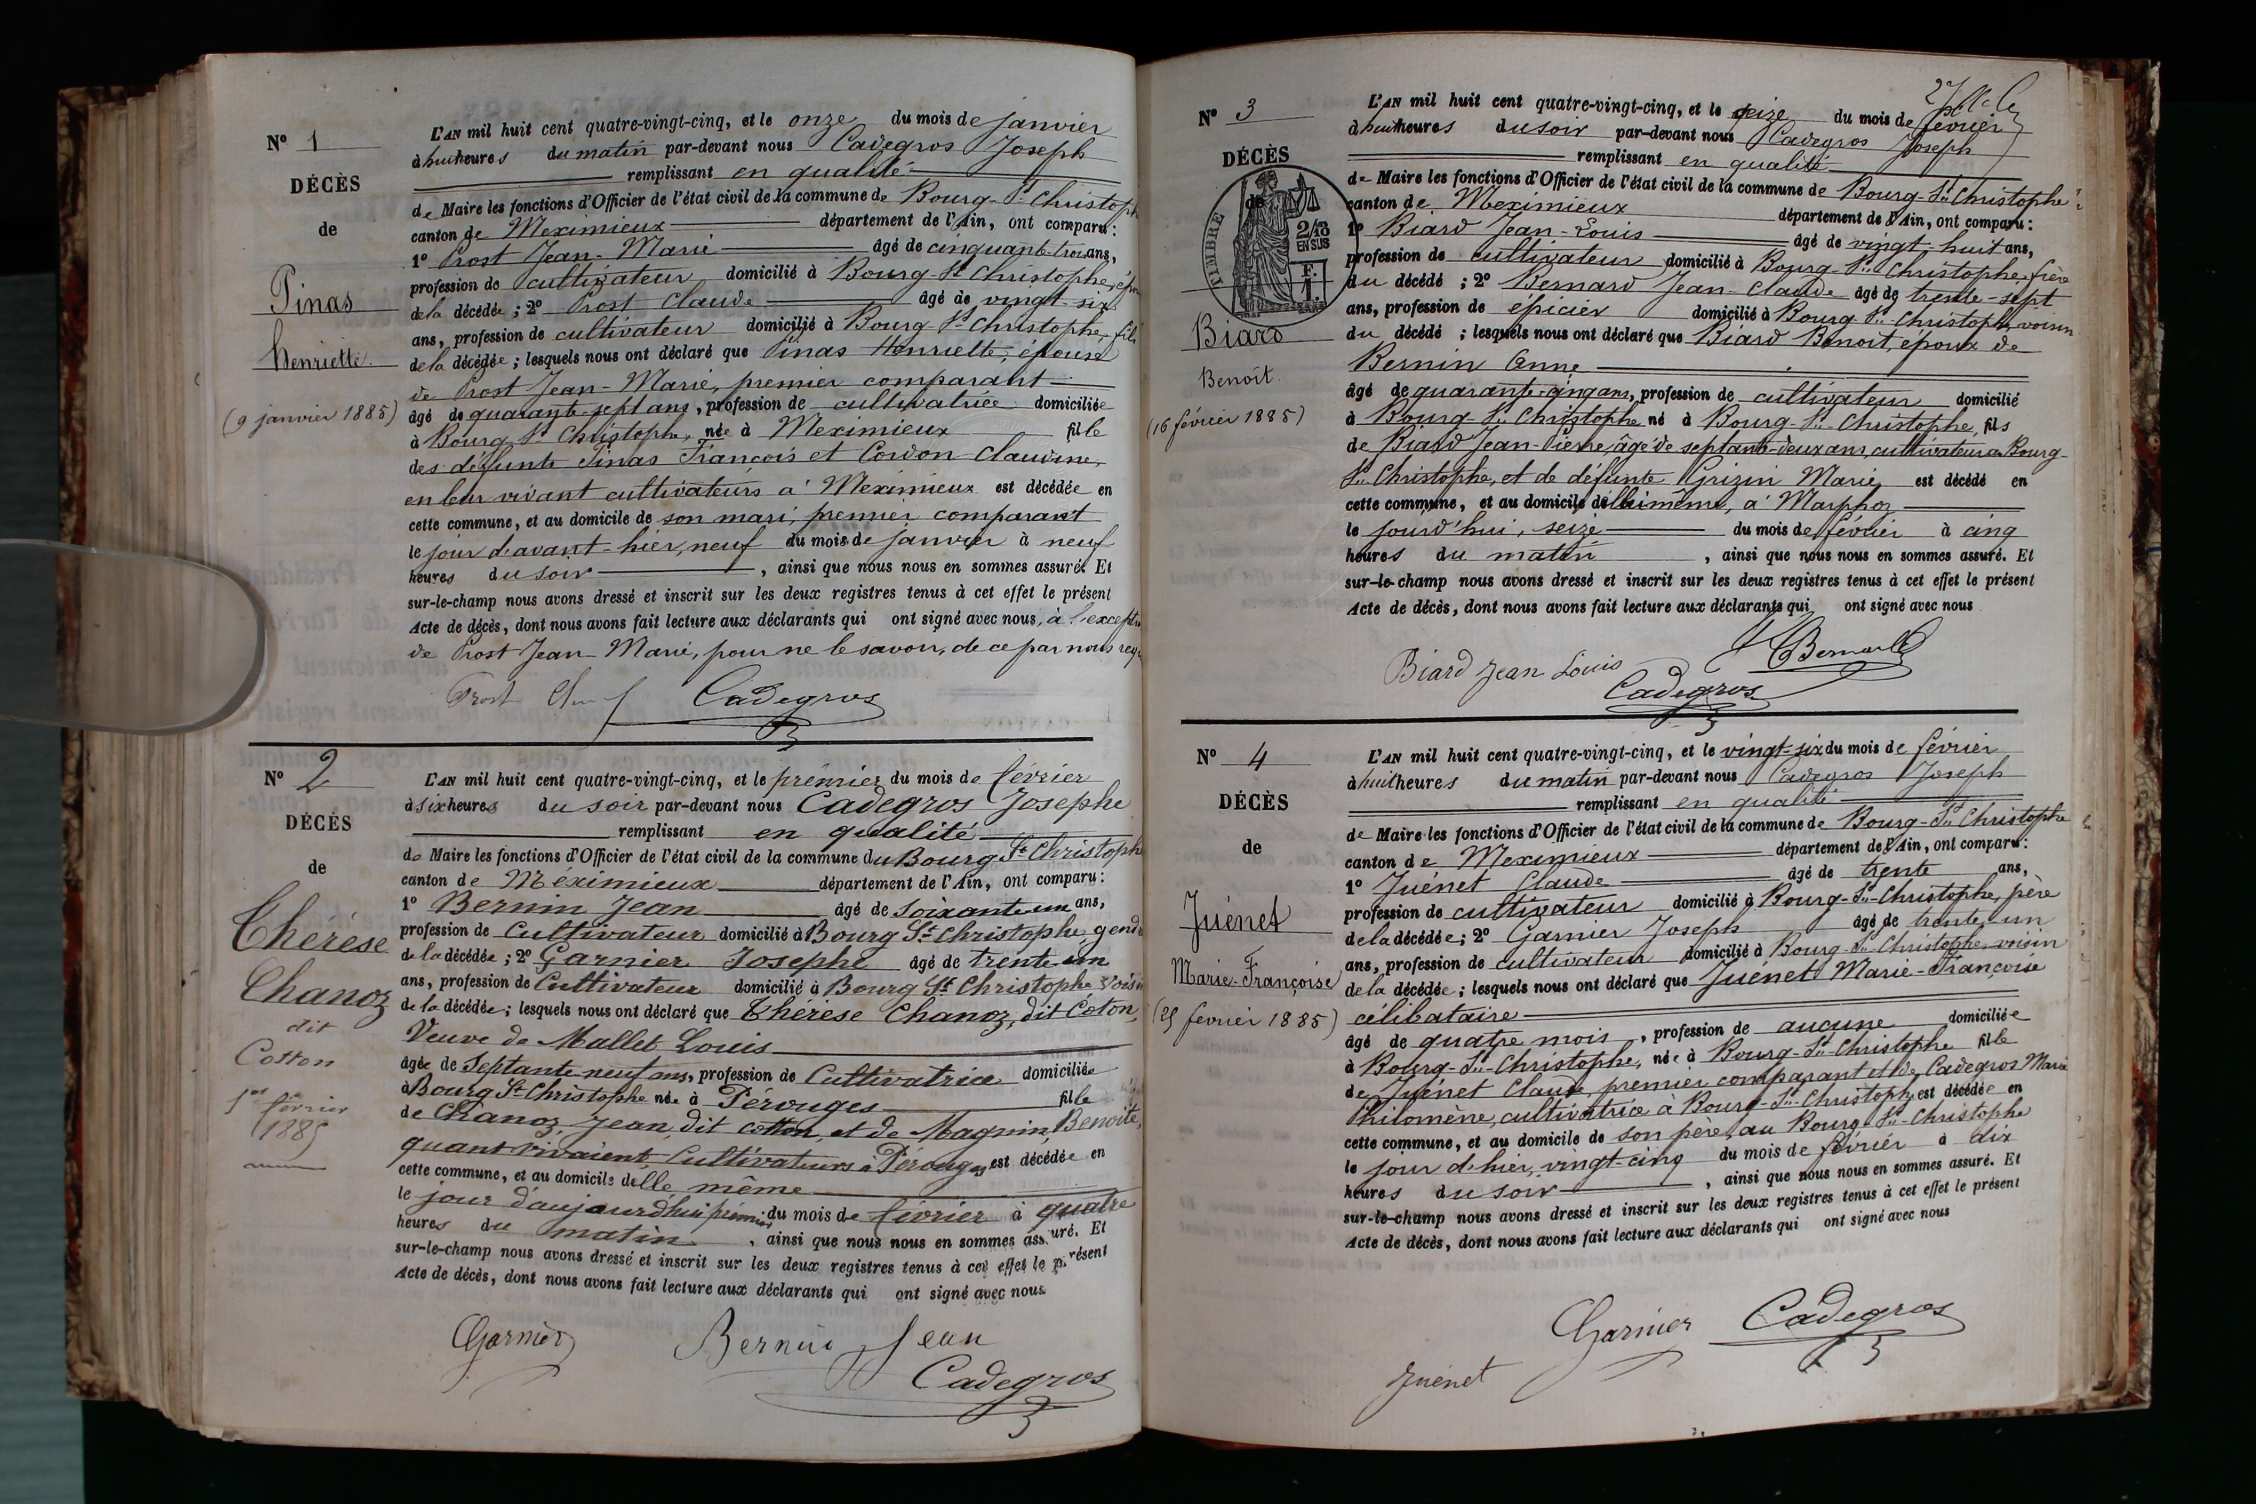 N° 1
DÉCÈS
de
Pinas
Henriette
(9 janvier 1885)
L'AN mil huit cent quatre-vingt-cinq, et le onze du mois de janvier
à huit heures du matin par-devant nous Cadegros Joseph
remplissant en qualité
de Maire les fonctions d'Officier de l'état civil de la commune de Bourg-St Christophe
canton de Meximieux département de l'Ain, ont comparu :
1° Prost Jean-Marie âgé de cinquante-trois ans,
profession de cultivateur domicilié à Bourg-St Christophe, époux
de la décédée ; 2° Prost Claude âgé de vingt-six
ans, profession de cultivateur domicilié à Bourg-St Christophe, fils
de la décédée ; lesquels nous ont déclaré que Pinas Henriette, épouse
de Prost Jean-Marie, premier comparant
âgé de quarante-sept ans, profession de cultivatrice domiciliée
à Bourg St Christophe, née à Meximieux fille
des défunts Pinas François et Cordon Claudine,
en leur vivant cultivateurs à Meximieux est décédée en
cette commune, et au domicile de son mari, premier comparant
le jour d'avant-hier, neuf du mois de janvier à neuf
heures du soir, ainsi que nous nous en sommes assuré. Et
sur-le-champ nous avons dressé et inscrit sur les deux registres tenus à cet effet le présent
Acte de décès, dont nous avons fait lecture aux déclarants qui ont signé avec nous, à l'exception
de Prost Jean-Marie, pour ne le savoir, de ce par nous requis
Prost Cadegros
N° 2
DÉCÈS
de
Thérèse
Chanoz
dit
Cotton
1er février
1885
L'AN mil huit cent quatre-vingt-cinq, et le prémier du mois de février
à six heures du soir par-devant nous Cadegros Josephe
remplissant en qualité
de Maire les fonctions d'Officier de l'état civil de la commune du Bourg St Christophe
canton de Méximieux département de l'Ain, ont comparu :
1° Bernin Jean âgé de soixante un ans,
profession de Cultivateur domicilié à Bourg St Christophe gendre
de la décédée ; 2° Garnier Josephe âgé de trente-un
ans, profession de Cultivateur domicilié à Bourg St Christophe voisin
de la décédée ; lesquels nous ont déclaré que Thérèse Chanoz, dit Coton,
Veuve de Mallet Louis
âgée de Septante neuf ans, profession de Cultivatrice domiciliée
à Bourg St Christophe née à Perouges fille
de Chanoz, Jean, dit cotton, et de Magnin, Benoite,
quant vivaient Cultivateurs à Pérouges est décédée en
cette commune, et au domicile delle même
le jour d'aujourdhui premier du mois de février à quatre
heures du matin, ainsi que nous nous en sommes assuré. Et
sur-le-champ nous avons dressé et inscrit sur les deux registres tenus à cet effet le présent
Acte de décès, dont nous avons fait lecture aux déclarants qui ont signé avec nous.
Garnier Bernin Jean
Cadegros
N° 3
DÉCÈS
de
TIMBRE
2/10
EN SUS
F.
1
Biard
Benoît
(16 février 1885)
L'AN mil huit cent quatre-vingt-cinq, et le seize du mois de février
à huit heures du soir par-devant nous Cadegros Joseph
remplissant en qualité
de Maire les fonctions d'Officier de l'état civil de la commune de Bourg-St Christophe
canton de Meximieux département de l'Ain, ont comparu :
1° Biard Jean-Louis âgé de vingt-huit ans,
profession de cultivateur domicilié à Bourg-St Christophe, frère
du décédé ; 2° Bernard Jean-Claude âgé de trente-sept
ans, profession de épicier domicilié à Bourg St Christophe, voisin
du décédé ; lesquels nous ont déclaré que Biard Benoît, époux de
Bernin Anne
âgé de quarante-cinq ans, profession de cultivateur domicilié
à Bourg-St-Christophe né à Bourg-St-Christophe, fils
de Biard Jean-Pierre, âgé de septante-deux ans, cultivateur à Bourg-
St-Christophe, et de défunte Grizin Marie est décédé en
cette commune, et au domicile de lui même, à Marphoz
le jourd'hui, seize du mois de février à cinq
heures du matin, ainsi que nous nous en sommes assuré. Et
sur-le-champ nous avons dressé et inscrit sur les deux registres tenus à cet effet le présent
Acte de décès, dont nous avons fait lecture aux déclarants qui ont signé avec nous
Biard Jean Louis Bernard
Cadegros
N° 4
DÉCÈS
de
Juénet
Marie-Françoise
(25 février 1885)
L'AN mil huit cent quatre-vingt-cinq, et le vingt-six du mois de février
à huit heures du matin par-devant nous Cadegros Joseph
remplissant en qualité
de Maire les fonctions d'Officier de l'état civil de la commune de Bourg-St-Christophe
canton de Meximieux département de l'Ain, ont comparu :
1° Juénet Claude âgé de trente ans,
profession de cultivateur domicilié à Bourg-St-Christophe, père
de la décédée ; 2° Garnier Joseph âgé de trente-un
ans, profession de cultivateur domicilié à Bourg-St-Christophe voisin
de la décédée ; lesquels nous ont déclaré que Juénet Marie-Françoise
célibataire
âgé de quatre mois, profession de aucune domiciliée
à Bourg-St-Christophe, née à Bourg-St-Christophe fille
de Juénet Claude, premier comparant et de Cadegros Marie
Philomène, cultivatrice à Bourg-St-Christophe est décédée en
cette commune, et au domicile de son père, au Bourg-St-Christophe
le jour d'hier, vingt-cinq du mois de février à dix
heures du soir, ainsi que nous nous en sommes assuré. Et
sur-le-champ nous avons dressé et inscrit sur les deux registres tenus à cet effet le présent
Acte de décès, dont nous avons fait lecture aux déclarants qui ont signé avec nous
Garnier Cadegros
Juénet